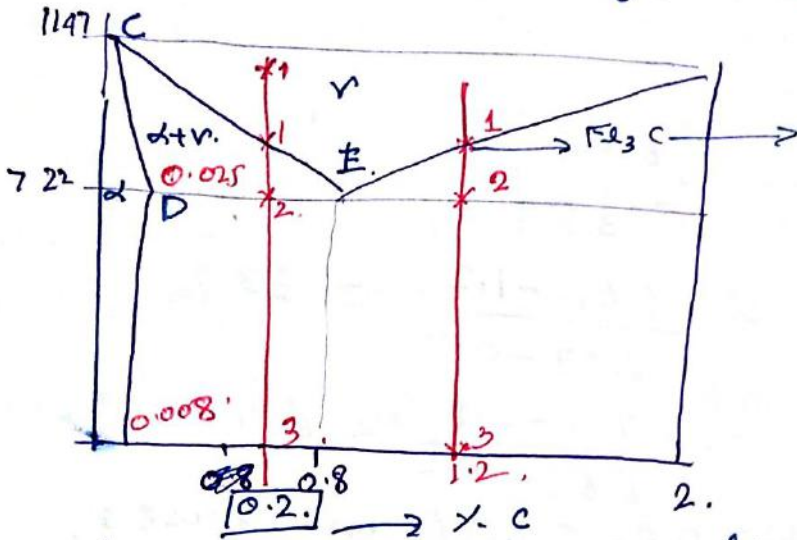 1147 C
γ
α+γ.
1 1 → Fe₃ C →
E.
722 α 0.025 2
D 2.
0.008.
3. 3
0.8 1.2.
0.2. → %. C 2.